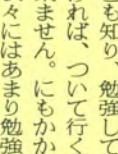 も知り、勉強して
われば、ついて行く
ません。にもかか
々にはあまり勉強